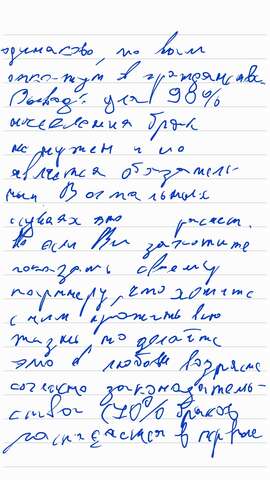 одинаково, но вам
откажут в гражданстве.
Вывод: для 98%
населения брак
не нужен и не
является обязатель-
ным. В остальных
случаях это
Но если Вы захотите
показать своему
партнеру, что хотите
с ним прожить всю
жизнь, то делайте
это в любом возрасте
согласно законодатель-
ства (70% браков
распадается в первые